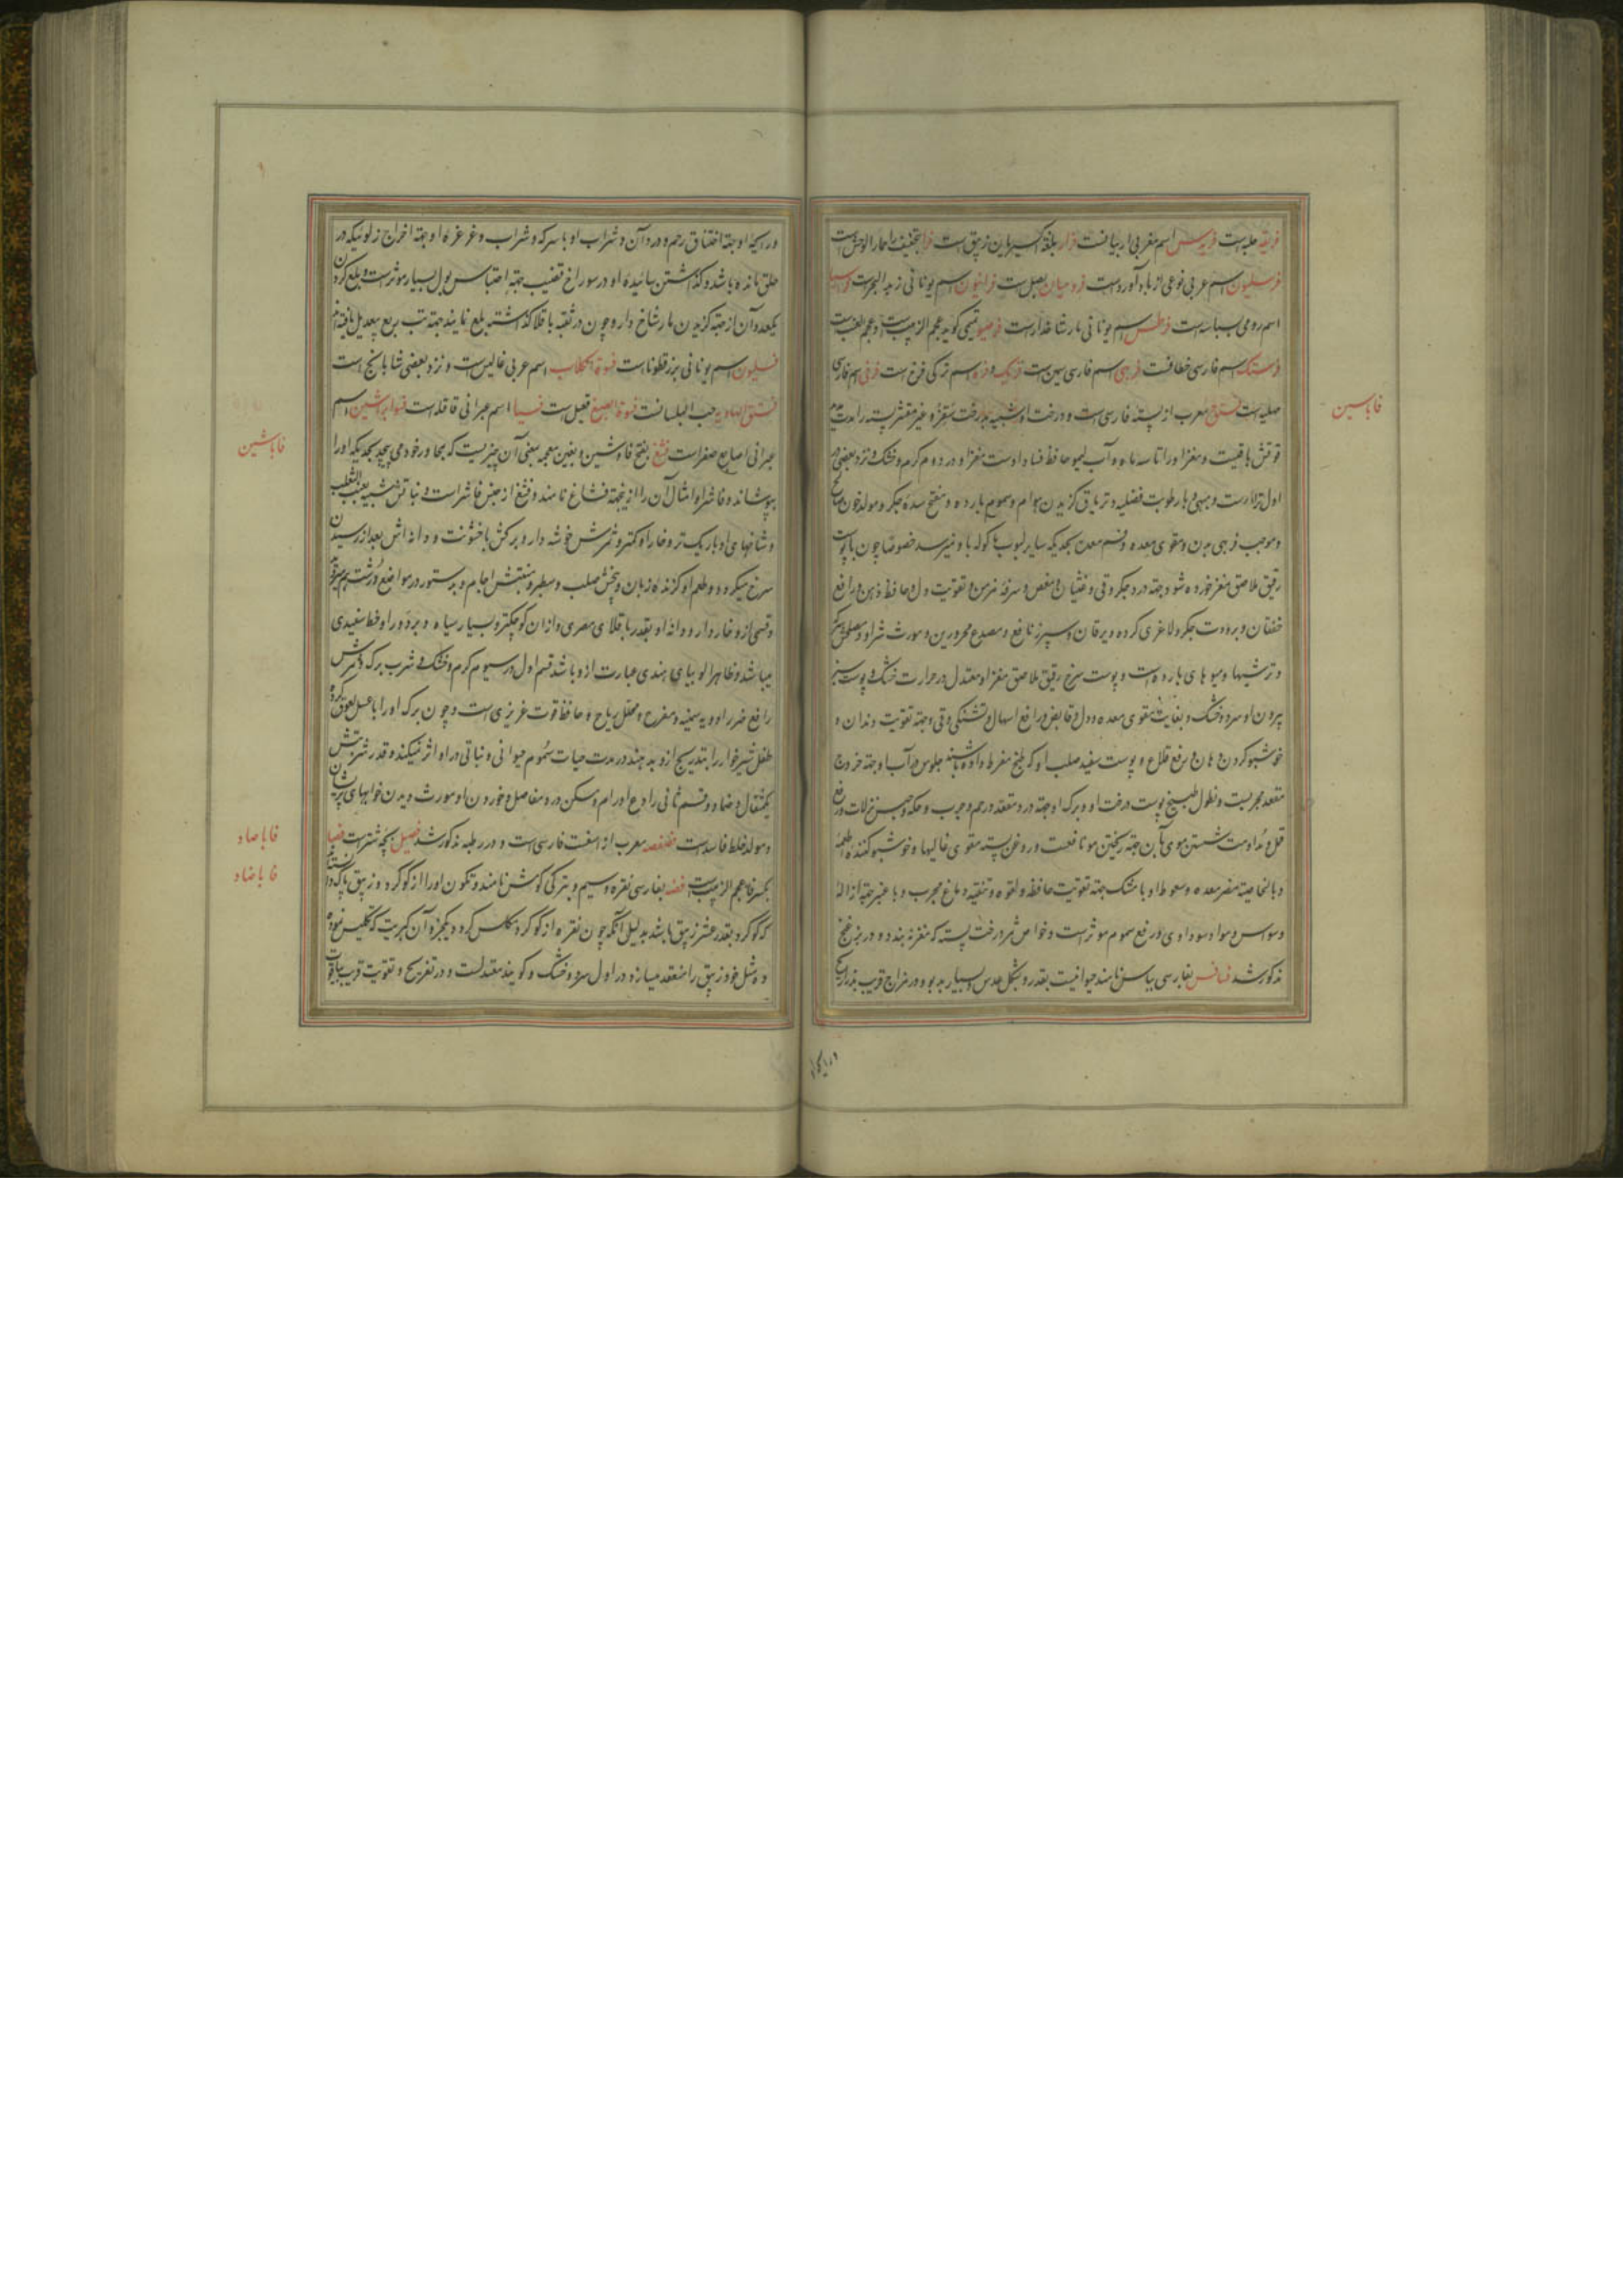 فریقه حلبه است فریس اسم مغربی اربیانست فرار بلغة اکسیریان زیبق است فرا بتخفیف را حمار الوحش است
فرسلیون اسم عربی نوعی از بادآورد است فرومیان بصل است فراینون اسم یونانی زبد البحر است
اسم رومی بسباسه است فرطس اسم یونانی مار شاخدار است تمیمی گوید عجم الزبیب است و عجم العنب است
فرستک اسم فارسی خطافست فربهی اسم فارسی سمن است و فره اسم ترکی فرخ است فرنی اسم فارسی
مهلبیه است
فاباسین
فستق معرب از پسته فارسی است و درخت او شبیه بدرخت سقز و غیر مقشر پسته را مدت
قوتش باقیست و مغز او را تا سه ماه و آب لیمو حافظ فساد اوست مغز او در دوم گرم و خشک و نزد بعضی در
اول تر است و مبهی و با رطوبت فضلیه و تریاق گزیدن هوام و سموم بارده و مفتح سده جگر و مولد خون صالح
و موجب فربهی بدن و مقوی معده و فم معده بحدیکه سایر لبوب باکوله باو نمیرسد خصوصا چون با پوست
رقیق ملاصق مغز خورده شود و جهة درد جگر و قی و غثیان و مغص و سرفه مزمن و تقویت دل و حافظ ذهن و رافع
خفقان و برودت جگر و لاغری کرده و یرقان و سپرز نافع و مصدع محرورین و مورث شرا و مصلحش سرکه
و ترشیها و میوهای بارده است و پوست سرخ رقیق ملاصق مغز او معتدل در حرارت خشک و پوست سبز
بیرون او سرد و خشک و بغایت مقوی معده و دل و قابض و رافع اسهال و تشنگی و قی و جهة تقویت دندان و
خوشبو کردن دهان و رفع قلاع و پوست سفید صلب او که طبخ مفرط داده باشند جلوس در آب او جهة خروج
مقعد مجربست و نطول طبیخ پوست درخت او و برگ او جهة درد مقعد و رحم و جرب و حکه و حبس نزلات و رفع
قمل و مداومت شستن موی بآن جهة ریختن مو نافعست و روغن پسته مقوی غالیها و خوشبو کننده اطعمه
و بالخاصیة مضر معده و سعوط او با مشک جهة تقویت حافظه و لقوه و تنقیه دماغ مجرب و با عنبر جهة ازالهٔ
وسواس و مواد سوداوی و رفع سموم موثر است و خواص ثمر درخت پسته که مغز نه بندد و در بزغنج
مذکور شد فسافس بفارسی بیاس نامند حیوانیست بقدر و شکل عدس و بسیار بدبو و در مزاج قریب بذراریح
ورایحهٔ
ورایحهٔ او جهة اختناق رحم و درد آن و شراب او با سرکه و شراب و غرغرهٔ او جهة اخراج زلوئیکه در
حلق مانده باشد و گذاشتن سائیدهٔ او در سوراخ قضیب جهة احتباس بول بسیار موثر است و بلع کردن
یکعدد آن از جهة گزیدن مار شاخ دار و چون در ثقبه باقلا گذاشته بلع نمایند جهة تب ربع بیعدیل یافته اند
فسلیون اسم یونانی بزر قطوناست فسوة الکلاب اسم عربی غالیس است و نزد بعضی شابانج است
فستق الهاویه حب البلسانست فسوة الضبع قعبل است فسیا اسم عبرانی قاقله است اسم
عبرانی اصابع صفر است
فاباشین
فشغ بفتح فا و شین و بغین معجمه بمعنی آن چیزیست که بمجاور خود می پیچد بحدیکه او را
بپوشاند و فاشرا و امثال آن را ازینجهة فشاغ نامند و فشغ از جنس فاشرا است و نباتش شبیه بعنب الثعلب
و شاخهای او باریک تر و خار او کمتر و ثمرش خوشه دار و برگش با خشونت و دانه اش بعد از رسیدن
سرخ میگردد و طعم او گزنده زبان و بیخش صلب و سطبر و منبتش اجام و بدستور در مواضع درشت هم میروید
و قسمی ازو خاردار و دانه او بقدر باقلای مصری و از آن کوچکتر و بسیار سیاه و بر دور او خط سفیدی
میباشد و ظاهرا لوبیای هندی عبارت ازو باشد قسم اول در سیوم گرم و خشک و شرب برگ و ثمرش
رافع ضرر ادویه سمیه و مفرح و محلل ریاح و حافظ قوت غریزی است و چون برگ او را با عسل لعوق کرده
طفل شیرخوار را بتدریج ازو بدهند در مدت حیات سموم حیوانی و نباتی در او اثر نمیکند و قدر شربتش
یکمثقال و ضماد و قسم ثانی رادع اورام و مسکن درد مفاصل و خوردن او مورث دیدن خوابهای پریشان
و مولد خلط فاسد است
فاباصاد
فصفصه معرب از اسفست فارسی است و در رطبه مذکور شد فصیل بچه شتر است فصیا
بکسر فا عجم الزبیب است
فاباضاد
فضه بفارسی نقره و سیم و بترکی گومش نامند و تکون او را از گوگرد و زیبق پاک دانسته اند
که گوگرد بقدر عشر زیبق باشد بدلیل آنکه چون نقره از گوگرد مکلس گردد یکجزو آن کبریت که تکلیس نموده
ده مثل خود زیبق را منعقد میسازد در اول سرد و خشک و گویند معتدلست و در تفریح و تقویت قریب بیاقوت